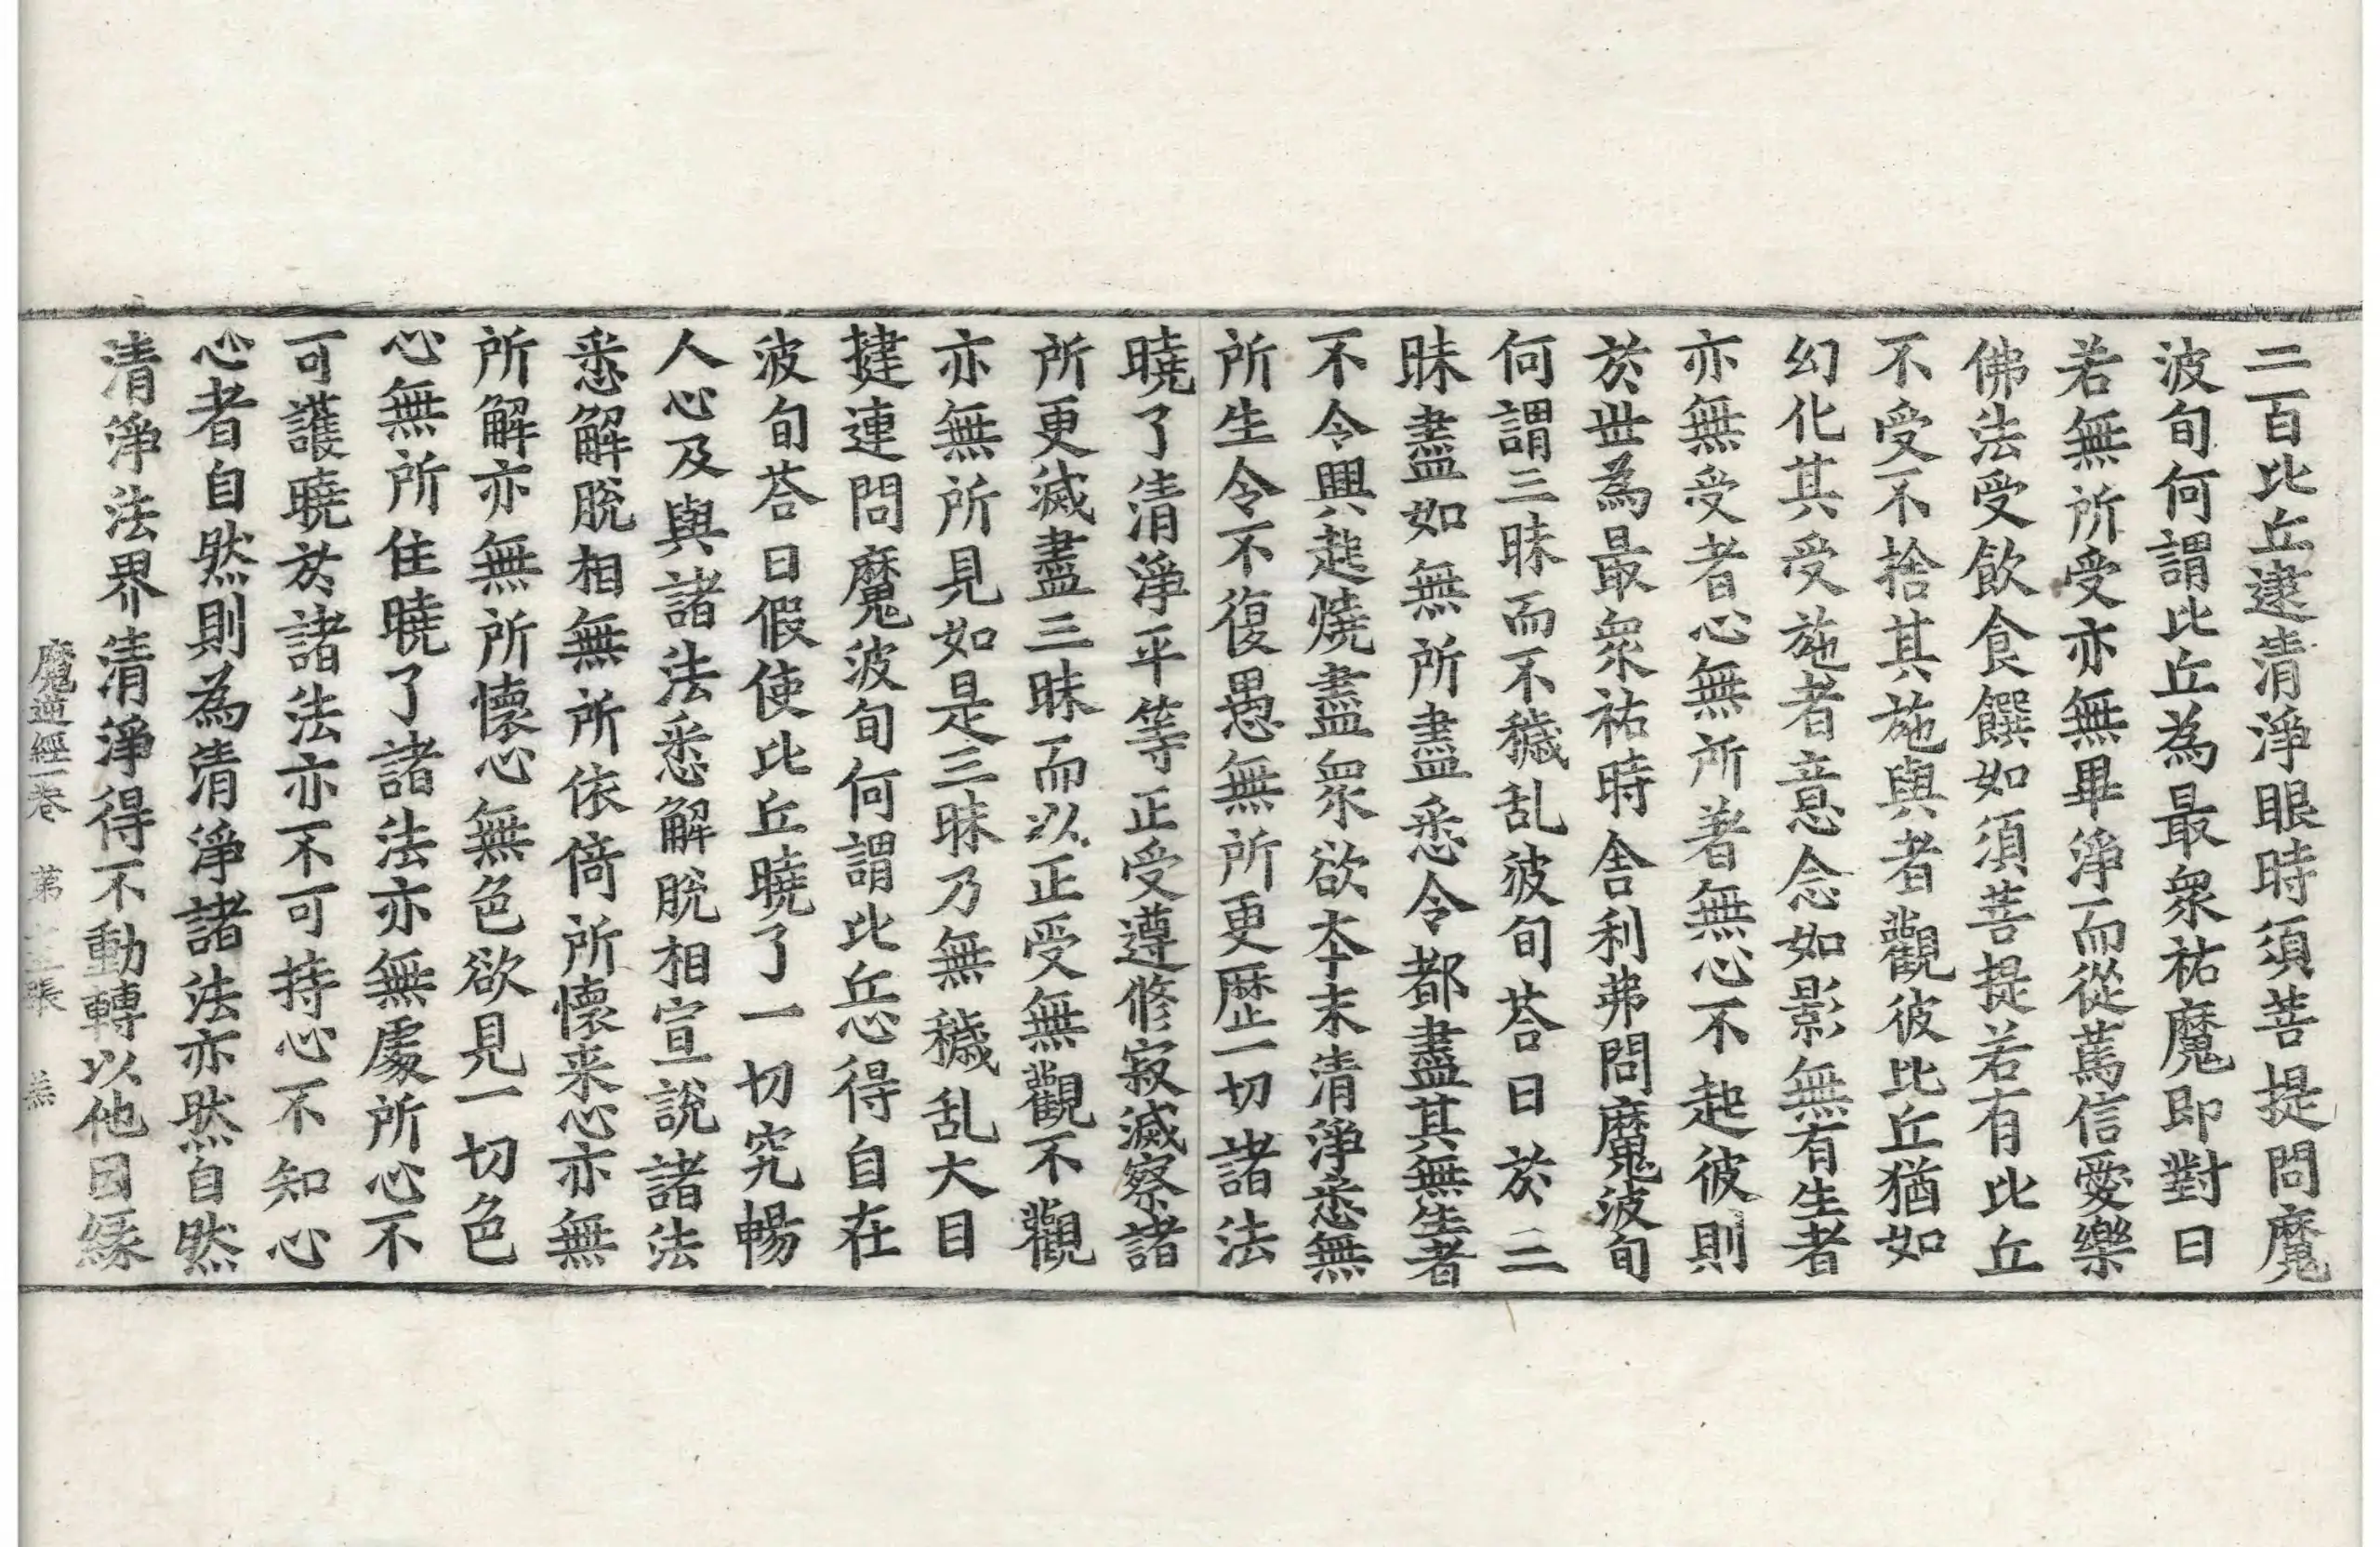 二百比丘逮清淨眼時須菩提問魔
波旬何謂比丘為最衆祐魔即對曰
若無所受亦無畢淨而從篤信愛樂
佛法受飲食饌如須菩提若有比丘
不受不捨其施與者觀彼比丘猶如
幻化其受施者意念如影無有生者
亦無受者心無所著無心不起彼則
於世為最衆祐時舍利弗問魔波旬
何謂三昧而不穢乱波旬荅曰於三
昧盡如無所盡悉令都盡其無生者
不令興起燒盡衆欲本末清淨悉無
所生令不復愚無所更歷一切諸法
曉了清淨平等正受遵修寂滅察諸
所更滅盡三昧而以正受無觀不觀
亦無所見如是三昧乃無穢乱大目
揵連問魔波旬何謂比丘心得自在
波旬荅曰假使比丘曉了一切究暢
人心及與諸法悉解脫相宣說諸法
悉解脫相無所依倚所懷来心亦無
所解亦無所懷心無色欲見一切色
心無所住曉了諸法亦無處所心不
可護曉於諸法亦不可持心不知心
心者自然則為清淨諸法亦然自然
清淨法界清淨得不動轉以他因緣
魔逆經一卷 第 張 羔